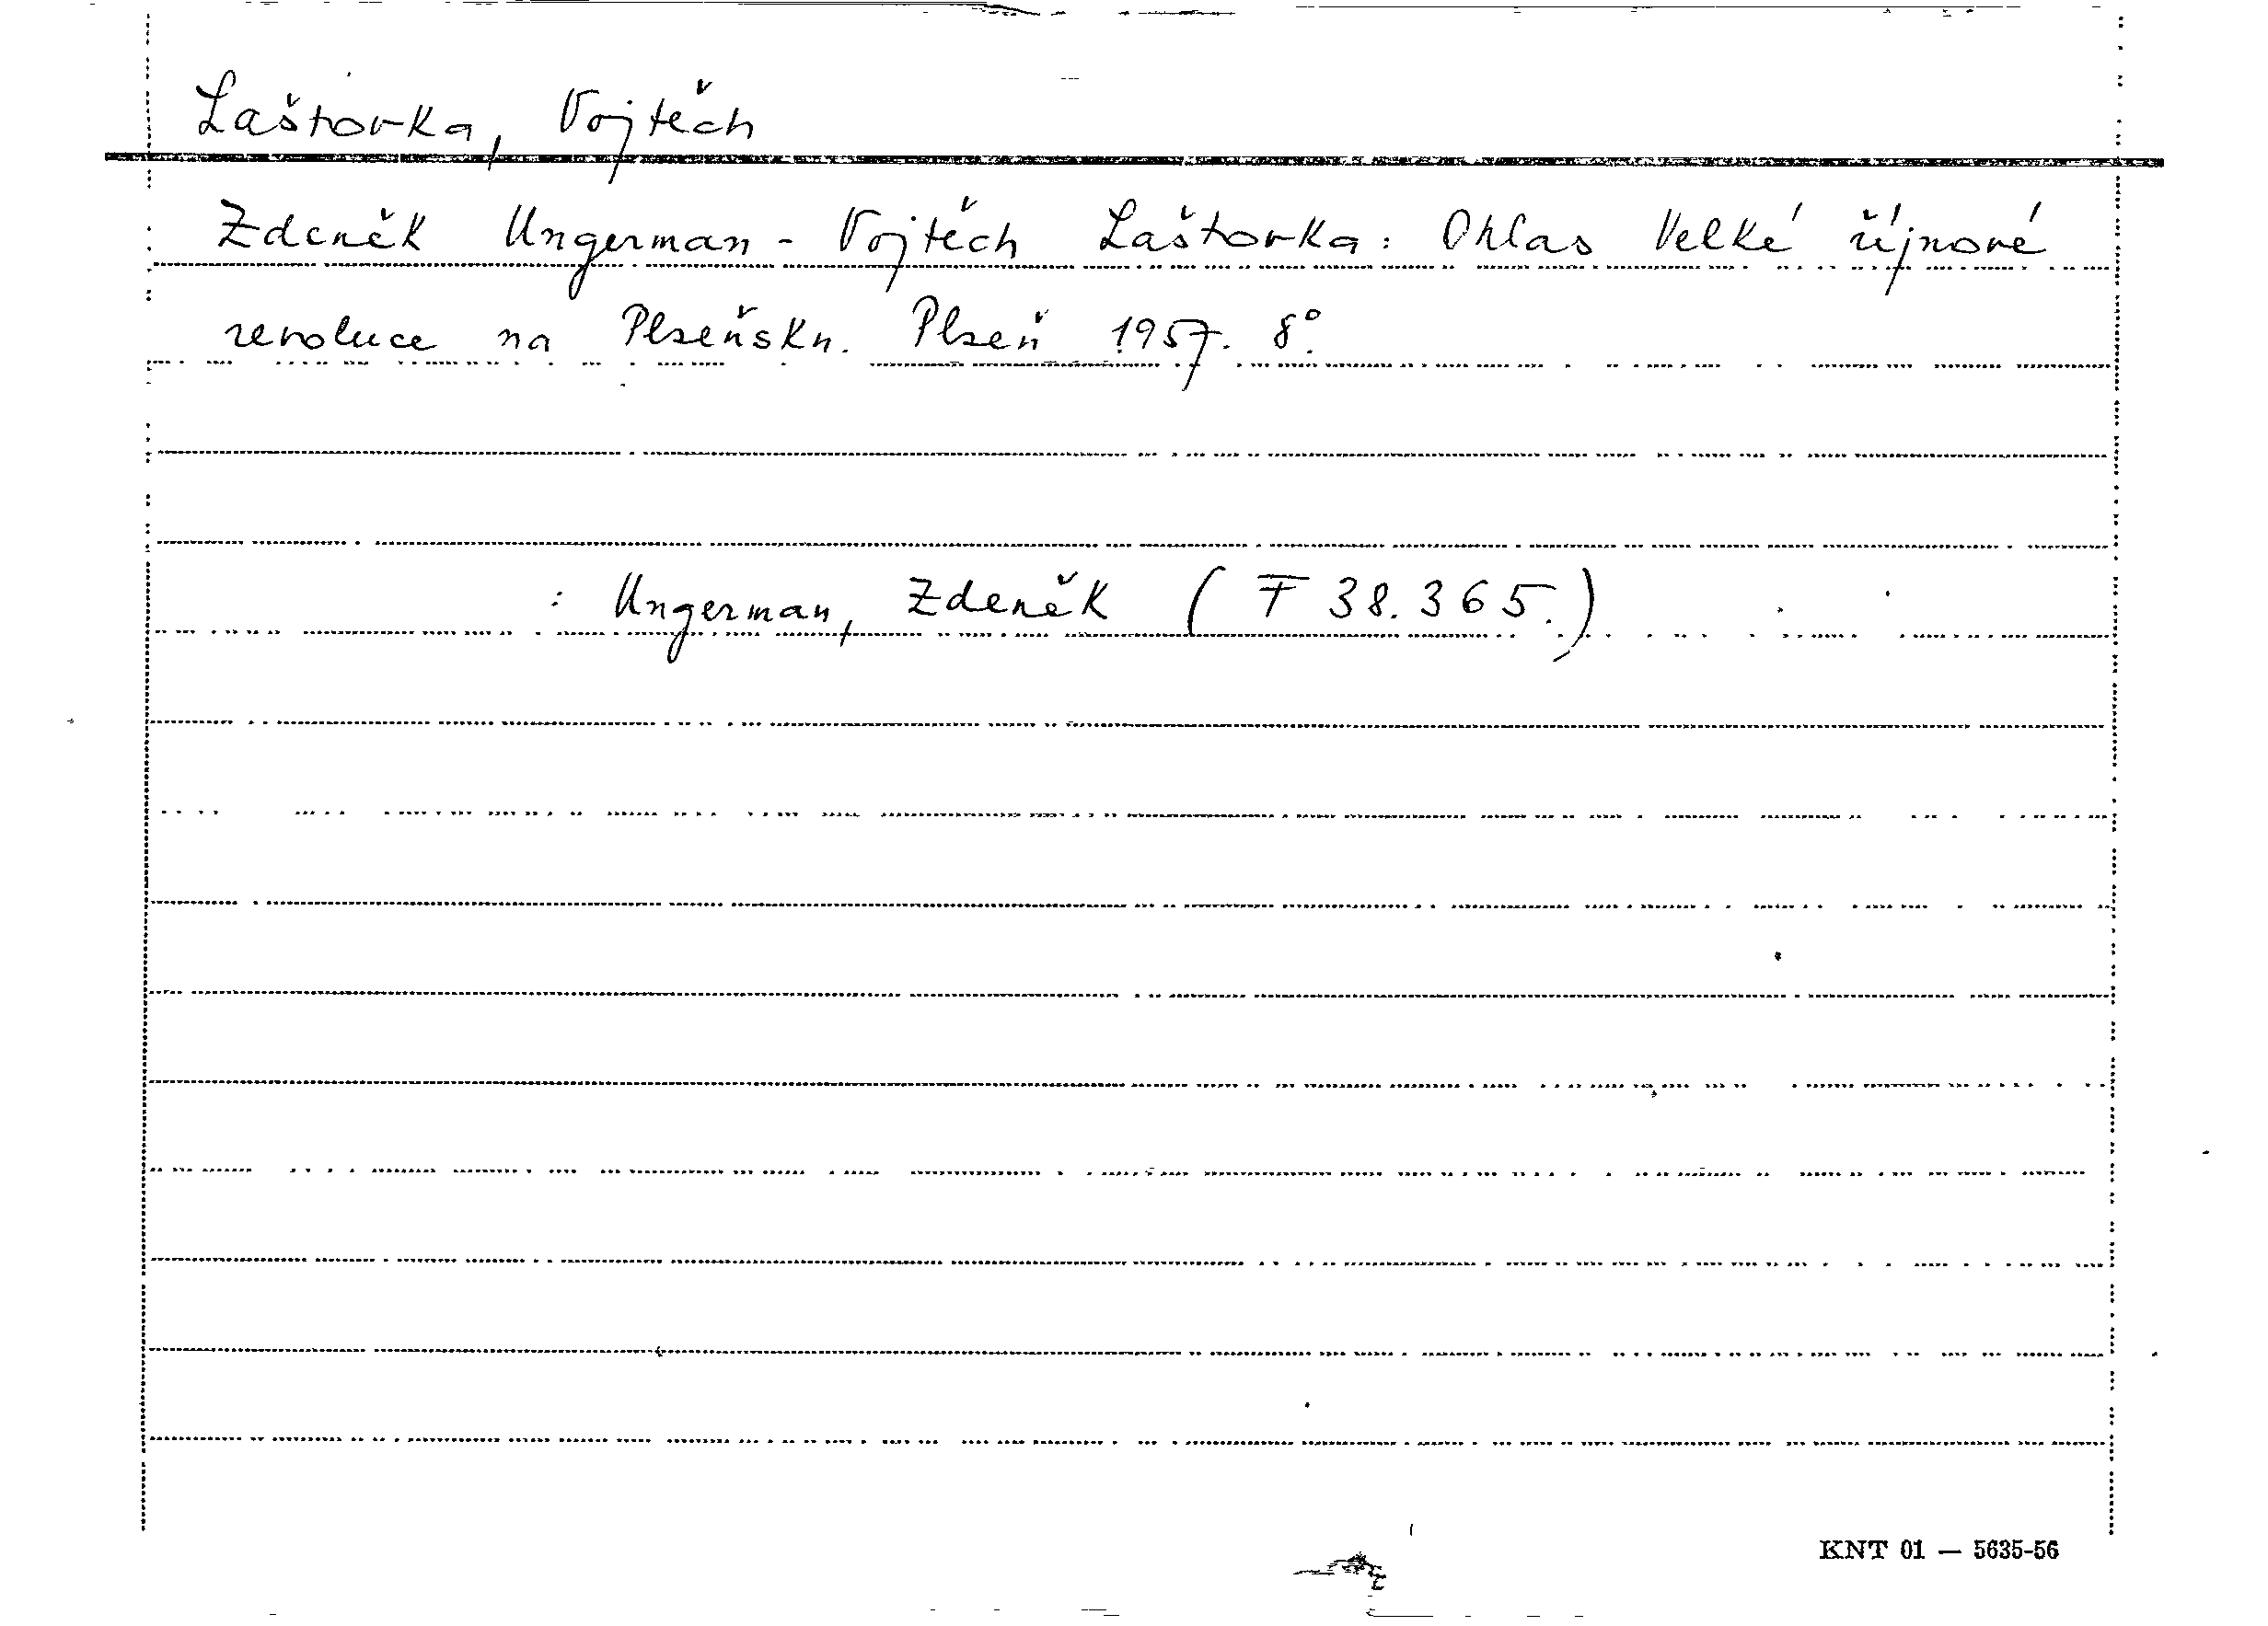 Laštovka, Vojtěch
Zdeněk Ungerman - Vojtěch Laštovka: Ohlas Velké říjnové
revoluce na Plzeňsku. Plzeň 1957. 8°.
: Ungerman, Zdeněk (F 38.365.)
KNT 01 — 5635-56